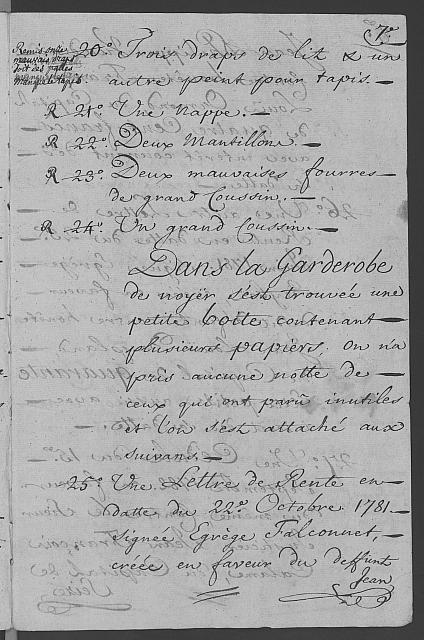 7.e
Remis onze
mauvais draps
soit des pattes
manque le tapis
20.° Trois draps de lit & un
autre peint pour tapis. —
R 21.° Une Nappe. —
R 22.° Deux Mantillons. —
R 23.° Deux mauvaises fourres
de grand Coussin. —
R 24.° Un grand Coussin. —
Dans la Garderobe
de noyër s'est trouvée une
petite boëtte contenant —
plusieurs papiers, on n'a
pris aucune notte de —
ceux qui ont parû inutiles
et l'on s'est attaché aux
suivans. —
25.° Une Lettre de Rente en
datte du 22.e Octobre 1781 —
signée Egrège Falconnet,
créée en faveur du deffunt
Jean